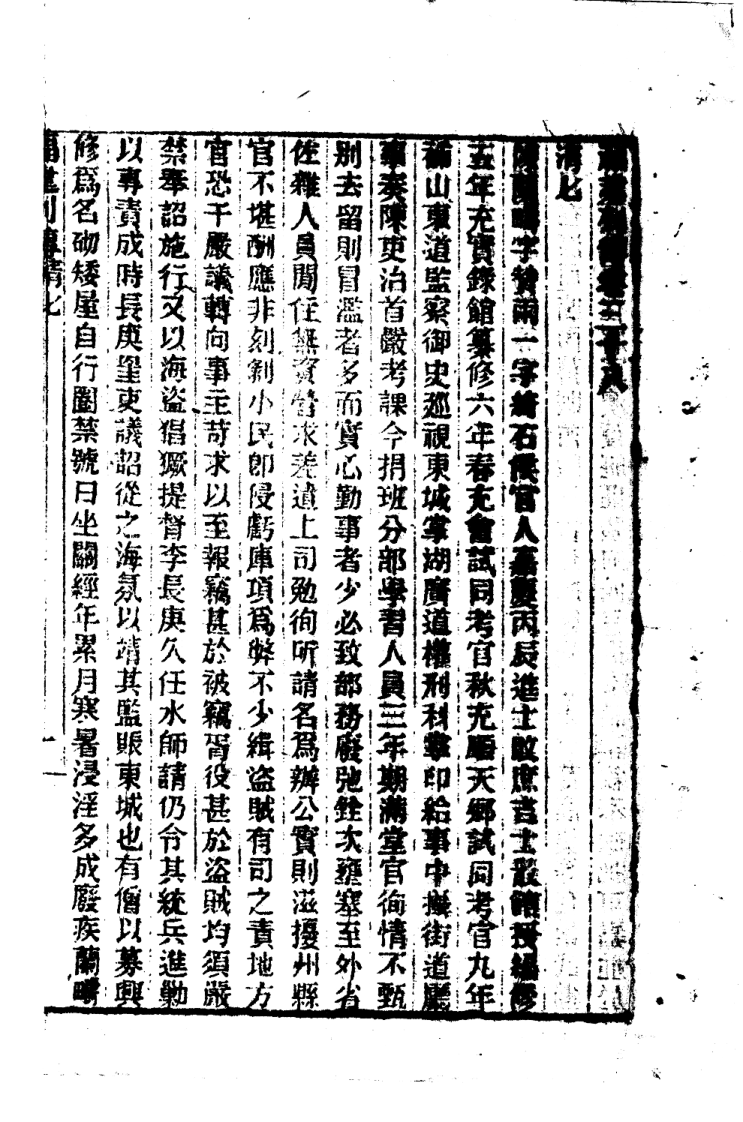 福建列傳卷三十八
清七
陳蘭疇字贊兩一字綺石候官人嘉慶丙辰進士改庶吉士散館授編修
五年充實錄館纂修六年春充會試同考官秋充順天鄉試同考官九年
補山東道監察御史巡視東城掌湖廣道權刑科掌印給事中擬街道廳
事奏陳吏治首嚴考課今捐班分部學習人員三年期滿堂官徇情不甄
別去留則冒濫者多而實心勤事者少必致部務廢弛銓次壅塞至外省
佐雜人員閒住無資營求差遣上司勉徇所請名爲辦公實則滋擾州縣
官不堪酬應非刻剝小民卽侵虧庫項爲弊不少緝盜賊有司之責地方
官恐干嚴議轉向事主苛求以至報竊甚於被竊胥役甚於盜賊均須嚴
禁奉詔施行又以海盜猖獗提督李長庚久任水師請仍令其統兵進勦
以專責成時長庚皇吏議詔從之海氛以靖其監賑東城也有僧以募興
修爲名砌矮屋自行圈禁號曰坐關經年累月寒暑浸淫多成廢疾蘭疇
福建列傳清七
一